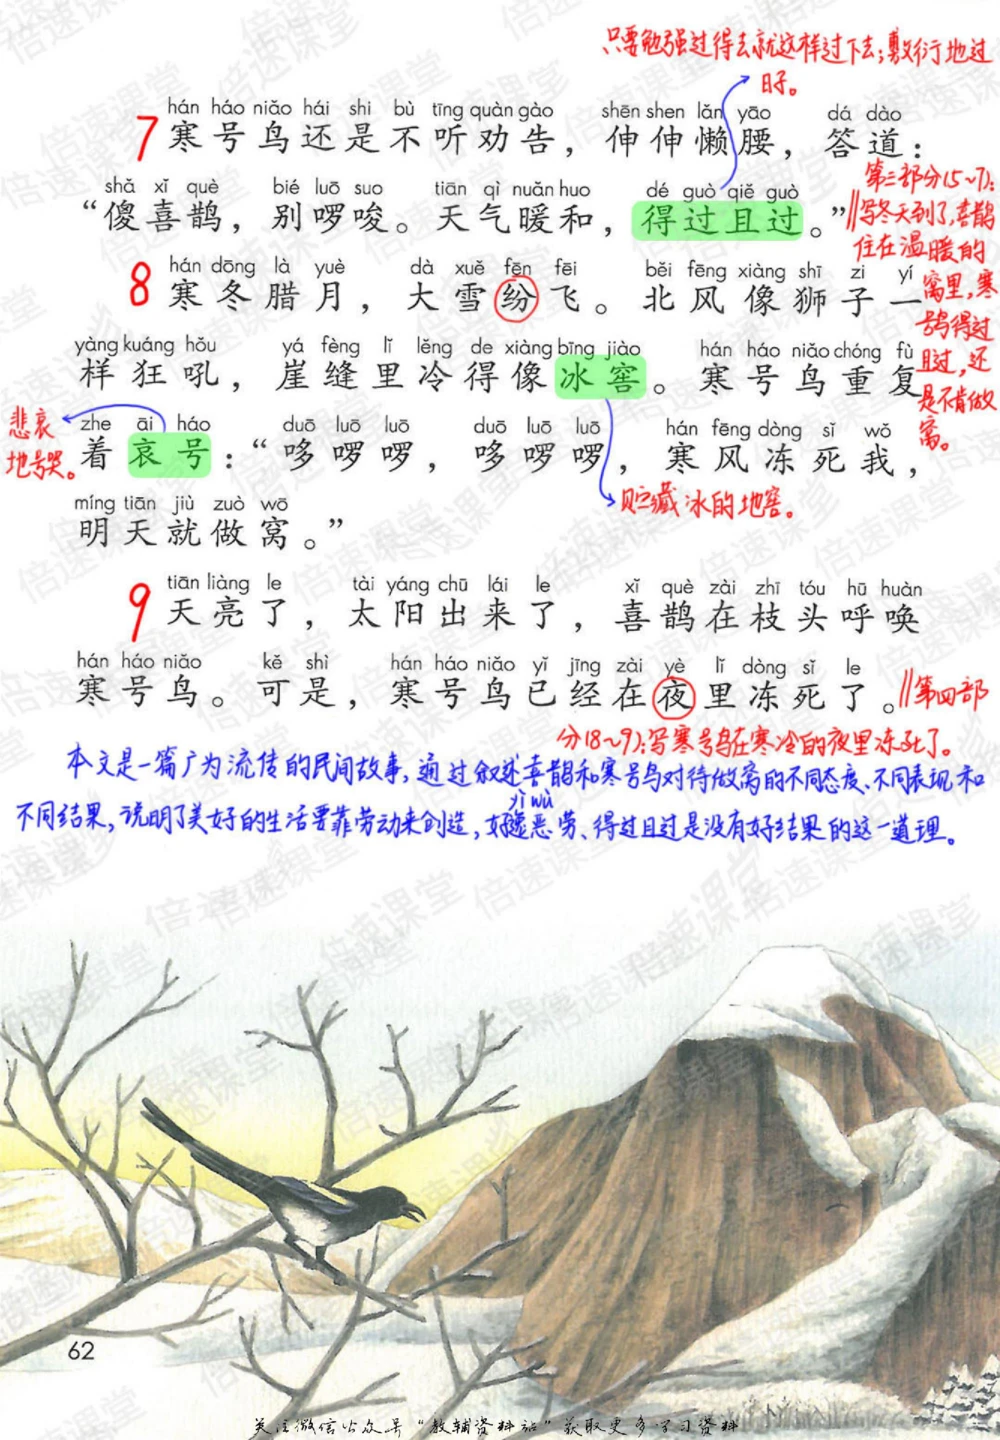 只要勉强过得去就这样过下去;敷衍地过
日子。
hán háo niǎo hái shi bù tīng quàn gào shēn shen lǎn yāo dá dào
7 寒号鸟还是不听劝告，伸伸懒腰，答道：
shǎ xǐ què bié luō suo tiān qì nuǎn huo dé guò qiě guò
“傻喜鹊，别啰唆。天气暖和，得过且过。”
第三部分(5~7):
写冬天到了,喜鹊
住在温暖的
窝里,寒
号鸟得过
且过,还
是不肯做
窝。
hán dōng là yuè dà xuě fēn fēi běi fēng xiàng shī zi yí
8 寒冬腊月，大雪纷飞。北风像狮子一
yàng kuáng hǒu yá fèng lǐ lěng de xiàng bīng jiào hán háo niǎo chóng fù
样狂吼，崖缝里冷得像冰窖。寒号鸟重复
悲哀
地号哭。
zhe āi háo duō luō luō duō luō luō hán fēng dòng sǐ wǒ
着哀号：“哆啰啰，哆啰啰，寒风冻死我，
贮藏冰的地窖。
míng tiān jiù zuò wō
明天就做窝。”
tiān liàng le tài yáng chū lái le xǐ què zài zhī tóu hū huàn
9 天亮了，太阳出来了，喜鹊在枝头呼唤
hán háo niǎo kě shì hán háo niǎo yǐ jīng zài yè lǐ dòng sǐ le
寒号鸟。可是，寒号鸟已经在夜里冻死了。
第四部
分(8~9):写寒号鸟在寒冷的夜里冻死了。
本文是一篇广为流传的民间故事,通过叙述喜鹊和寒号鸟对待做窝的不同态度、不同表现和
yì wù
不同结果,说明了美好的生活要靠劳动来创造,好逸恶劳、得过且过是没有好结果的这一道理。
62
关注微信公众号“教辅资料站”获取更多学习资料
倍速课堂